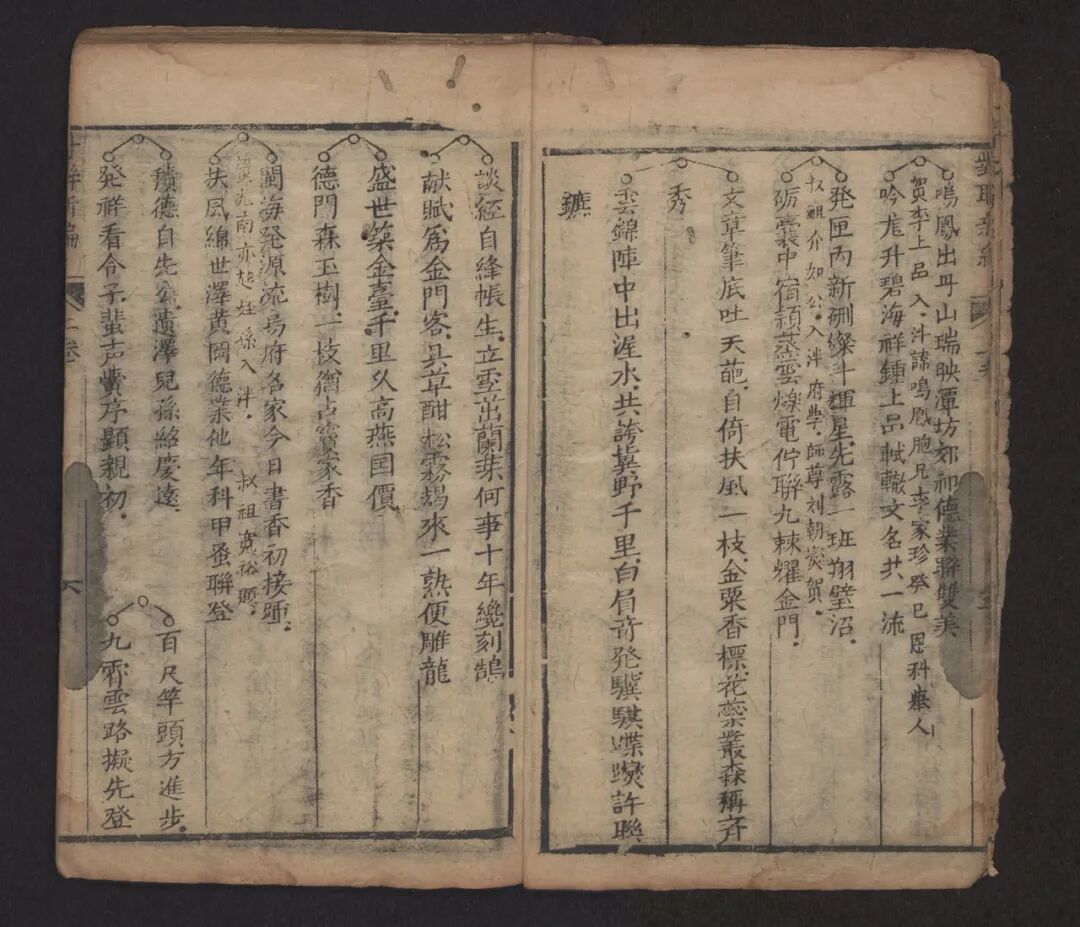 鳴鳳出丹山瑞映潭坊郊祁德業聯雙美
賀李上品入泮諱鳴鳳胞兄李家珍癸巳恩科舉人
吟龍升碧海祥鍾上品軾轍文名共一流
発匣丙新硎燦斗輝星先露一班翔壁沼
叔祖介如公入泮府學師尊刘朝賀
砺囊中宿頴蒸雲爍電佇聯九棘耀金門
文章筆底吐天葩自倚扶風一枝金粟香標花蘂叢森稱斉
秀
雲錦陣中出渥水共誇冀野千里白眉竒発驥騏蹀躞許聯
鑣
談經自絳帳生立雪茁蘭芽何事十年纔刻鵠
献賦爲金門客具草酣松霧朅來一熟便雕龍
盛世築金臺千里久高燕囯價
德門森玉樹一枝猶占竇家香
閩海発源流烏府名家今日書香初接踵
亦趋姪孫入泮 叔祖寬裕題
扶風綿世澤黄岡德業他年科甲蚤聨登
積德自先公遺澤兒孫綿慶遠
発祥看令子蜚声黌序顕親初
百尺竿頭方進步
九霄雲路擬先登
二卷
六